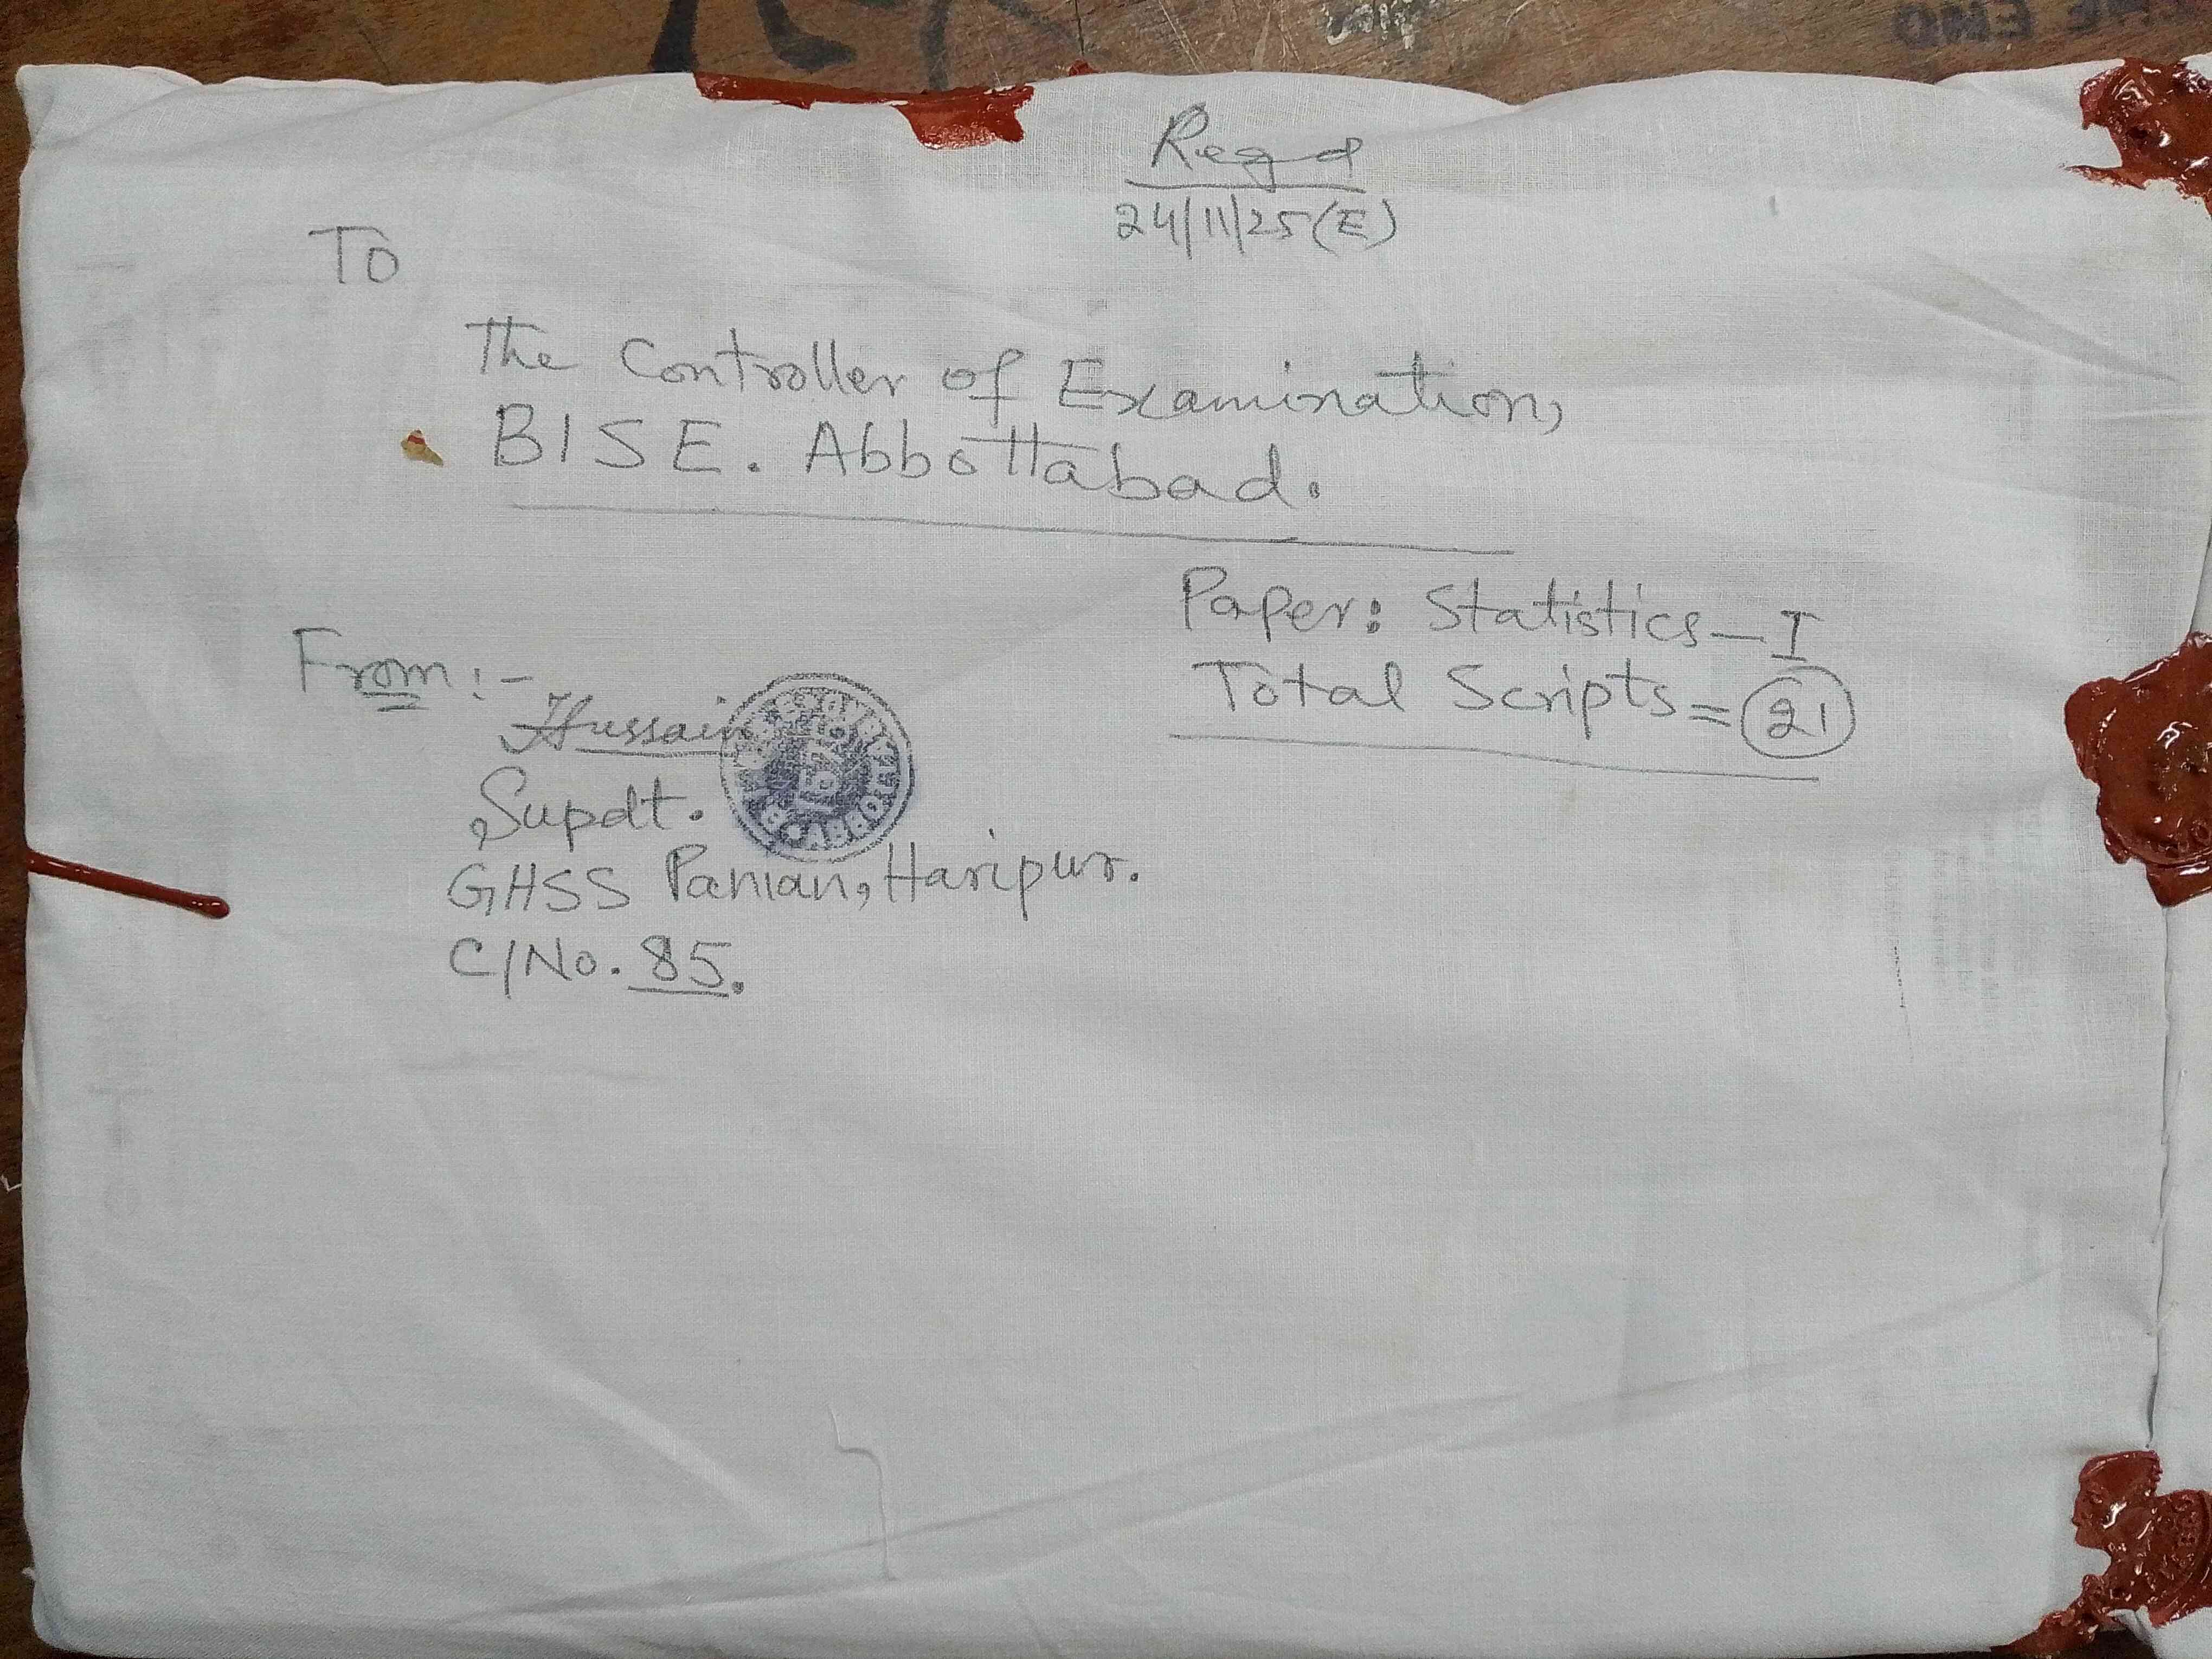 Regd
24/11/25(E)
To
The Controller of Examination,
BISE. Abbottabad.
Paper: Statistics-I
Total Scripts = 21
From:-
Hussain
Supdt.
GHSS Panian, Haripur.
C/No. 85.